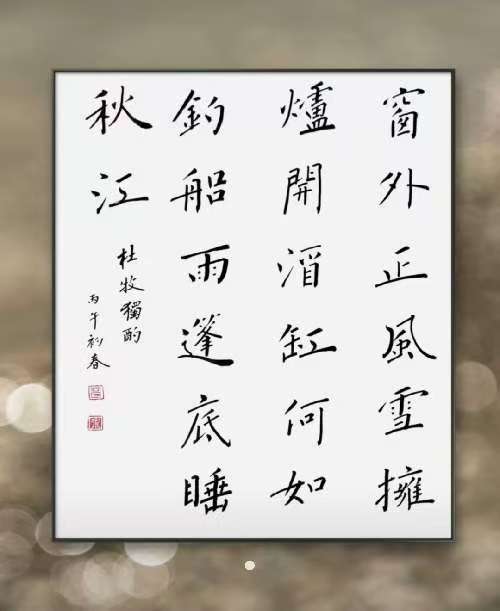 窗外正風雪擁
爐開酒缸何如
釣船雨篷底睡
秋江
杜牧獨酌
丙午初春